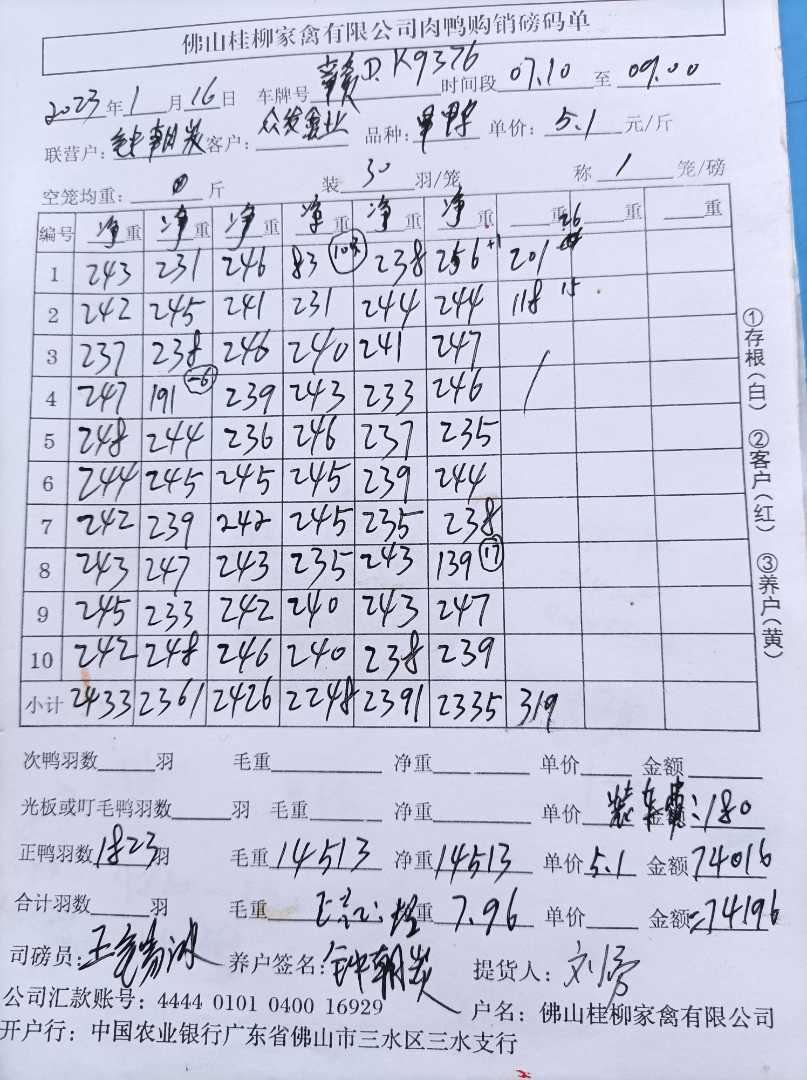 佛山桂柳家禽有限公司肉鸭购销磅码单
2023年1月16日 车牌号赣D.K9376 时间段07.10至09.00
联营户:钟朝炭 客户:众发禽业 品种: 单价:5.1元/斤
空笼均重:0斤 装30羽/笼 称1笼/磅
编号 净重 净重 净重 净重 净重 净重 重 重 重
1 243 231 246 83 238 256 +1 201 26
2 242 245 241 231 244 244 118 15
3 237 238 246 240 241 247
4 247 191 -6 239 243 233 246 /
5 248 244 236 246 237 235
6 244 245 245 245 239 244
7 242 239 242 245 235 238
8 243 247 243 235 243 139 17
9 245 233 242 240 243 247
10 242 248 246 240 238 239
小计 2433 2361 2426 2248 2391 2335 319
次鸭羽数 羽 毛重 净重 单价 金额
光板或叮毛鸭羽数 羽 毛重 净重 单价 金额 装车费:180
正鸭羽数1823羽 毛重14513 净重14513 单价5.1 金额74016
合计羽数 羽 毛重 重7.96 单价 金额=74196
司磅员: 养户签名:钟朝炭 提货人:
公司汇款账号:4444 0101 0400 16929 户名:佛山桂柳家禽有限公司
开户行:中国农业银行广东省佛山市三水区三水支行
①存根(白) ②客户(红) ③养户(黄)